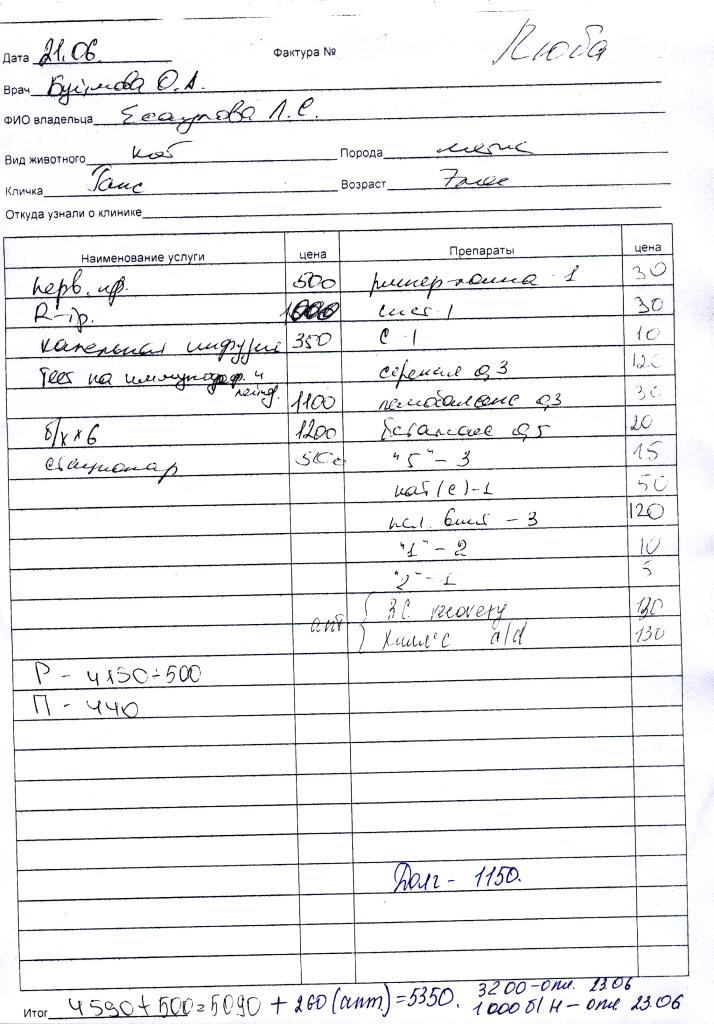 Люба
Дата 21.06. Фактура №
Врач О.А.
ФИО владельца Есаулова Л.С.
Вид животного кот Порода метис
Кличка Ганс Возраст 7 лет
Откуда узнали о клинике
Наименование услуги цена Препараты цена
перв. пр. 500 рингер - 1 30
R-гр. 1000 сист-1 30
капельная инфузия 350 С-1 10
Тест на иммунодеф. и серения 0,3 120
лейкоз. 1100 0,3 30
б/х х 6 1200 0,5 20
стационар 500 "5" - 3 15
кат(с)-1 50
- 3 120
"1" - 2 10
"2" - 1 5
апт R.C. recovery 130
Хилл'с a/d 130
Р - 4150+500
П - 440
Долг - 1150.
3200-опл. 23.06
Итог 4590+500=5090 + 260 (апт.) =5350. 1000 б/Н - опл. 23.06